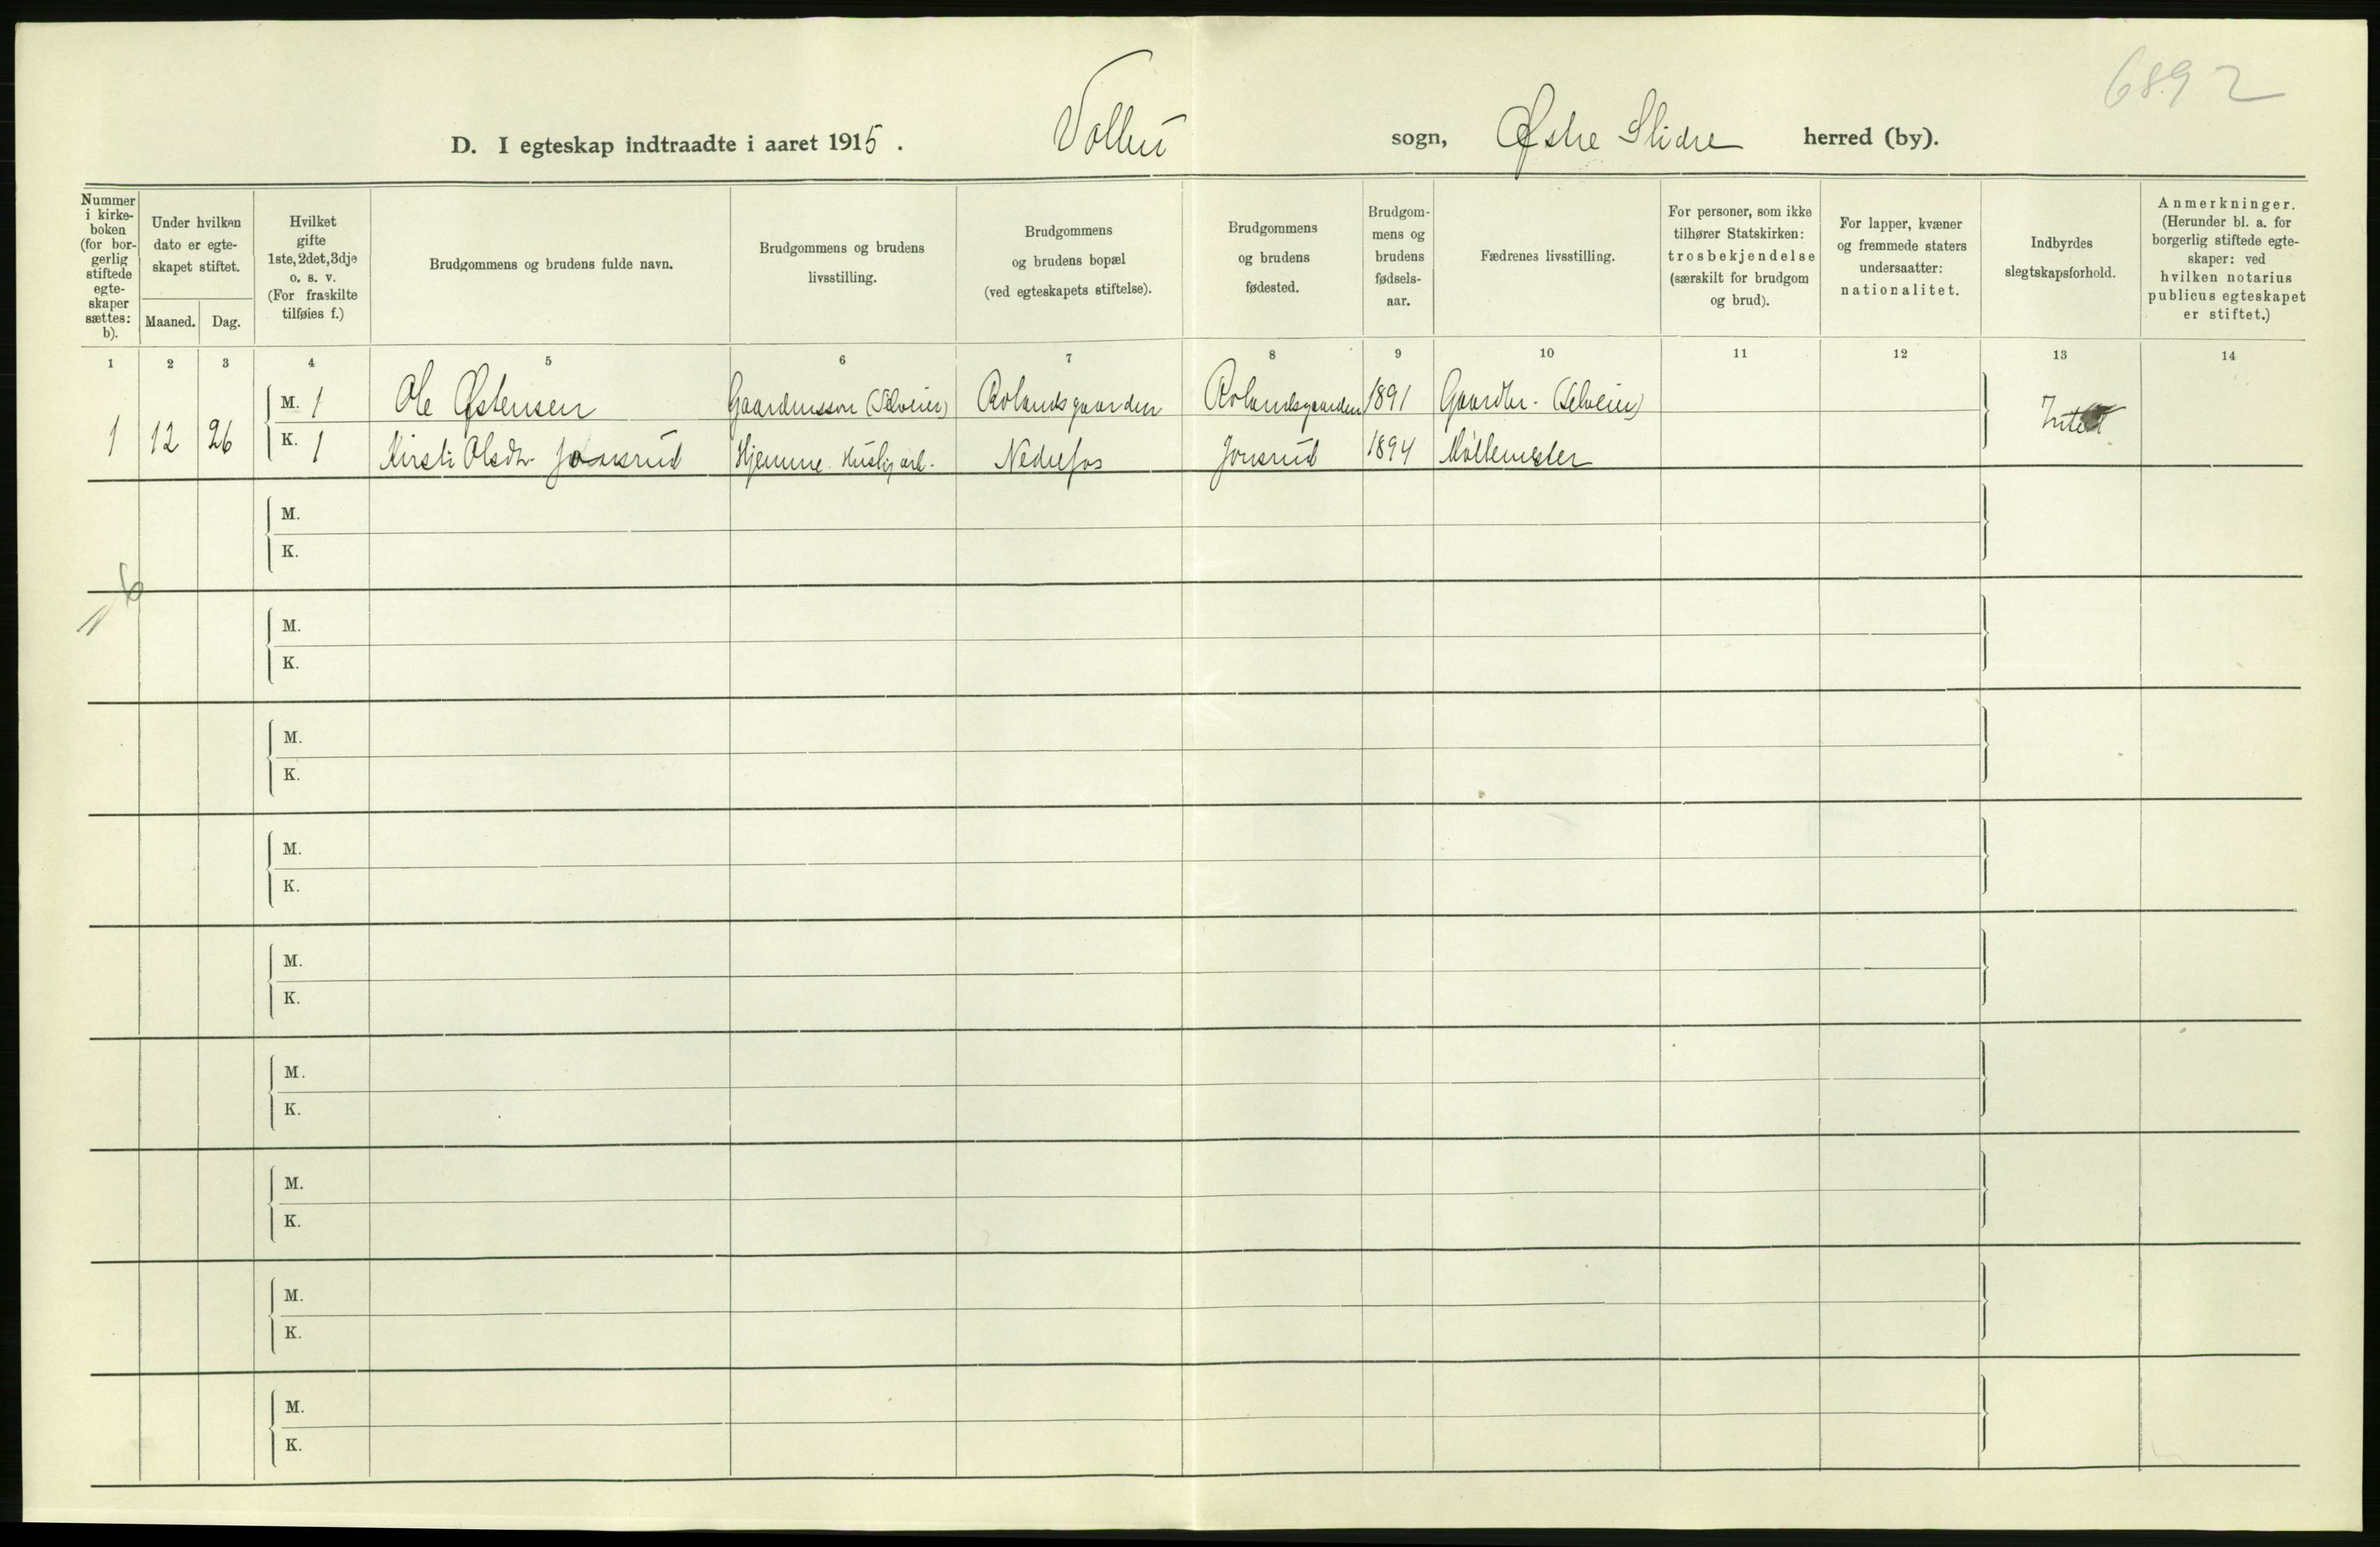 6892
D. I egteskap indtraadte i aaret 1915. Vollbu sogn, Østre Slidre herred (by).
Nummer i kirke- boken (for bor- gerlig stiftede egte- skaper sættes: b).
Under hvilken dato er egte- skapet stiftet.
Maaned. Dag.
Hvilket gifte 1ste, 2det, 3dje o. s. v. (For fraskilte tilføies f.)
Brudgommens og brudens fulde navn.
Brudgommens og brudens livsstilling.
Brudgommens og brudens bopæl (ved egteskapets stiftelse).
Brudgommens og brudens fødested.
Brudgom- mens og brudens fødsels- aar.
Fædrenes livsstilling.
For personer, som ikke tilhører Statskirken: trosbekjendelse (særskilt for brudgom og brud).
For lapper, kvæner og fremmede staters undersaatter: nationalitet.
Indbyrdes slegtskapsforhold.
Anmerkninger. (Herunder bl. a. for borgerlig stiftede egte- skaper: ved hvilken notarius publicus egteskapet er stiftet.)
1 2 3 4 5 6 7 8 9 10 11 12 13 14
M. 1 Ole Østensen Gaardmsson (Selveier) Rolandsgaarden Rolandsgaarden 1891 Gaardbr. (Selveier)
1 12 26 K. 1 Kirsti Olsdtr. Jonsrud Hjemme Huslig arb. Nedrefos Jonsrud 1894 Møllemester Intet
M.
K.
M.
K.
M.
K.
M.
K.
M.
K.
M.
K.
M.
K.
M.
K.
M.
K.